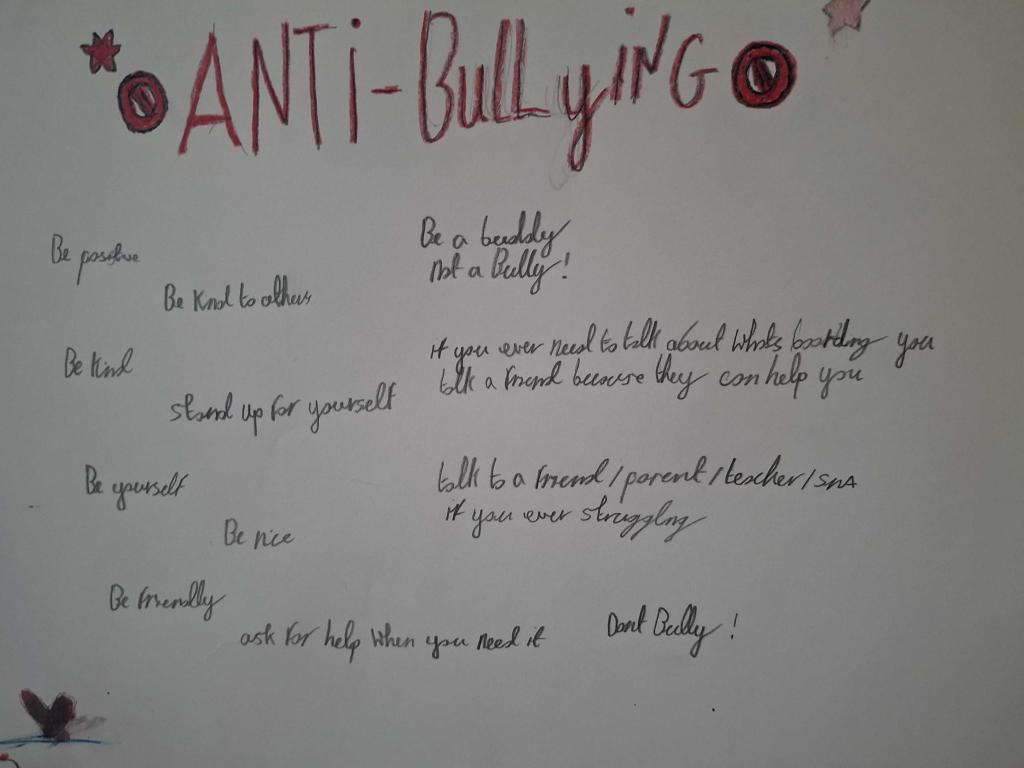 ANTi-BuLLyiNG
Be positive
Be a buddy
not a Bully!
Be Kind to others
Be kind
if you ever need to talk about whats boothing you
talk a friend because they can help you
stand up for yourself
Be yourself
talk to a friend/parent/teacher/SNA
if you ever struggling
Be nice
Be friendly
ask for help when you need it
Dont Bully!